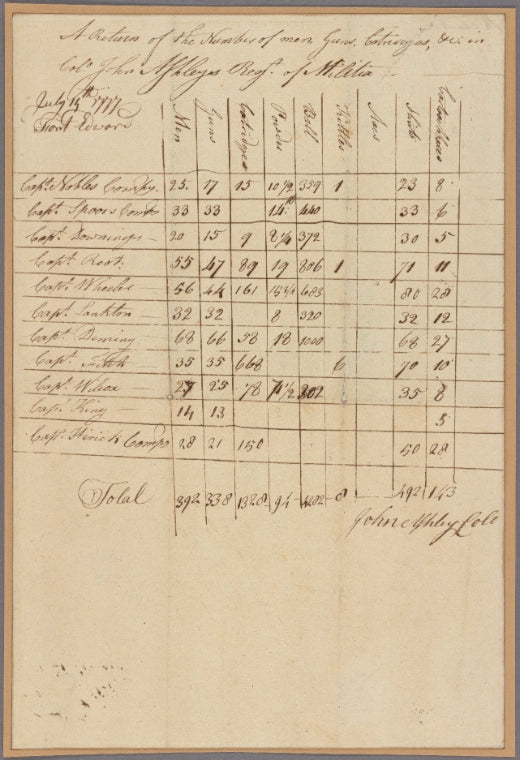 A Return of the Number of men, Guns, Catridges, &c. in
Colo. John Ashleys Regt. of Militia
July 19th 1777
Fort Edward
Men Guns Catridges Powder Ball Kittles Axes Flints
Capt. Nobles Compy. 25 17 15 10 1/2 359 1 23 8
Capt. Spoors Compy 33 33 14 440 33 6
Capt. Downings 20 15 9 8 1/4 372 30 5
Capt. Root 55 47 89 19 806 1 71 11
Capt. Wheeler 56 44 161 15 683 80 28
Capt. Lankton 32 32 8 320 32 12
Capt. Deming 68 66 58 18 1000 68 27
Capt. Fitch 35 35 668 6 70 10
Capt. Wilcox 27 25 78 1/2 302 35 8
Capt. King 14 13 5
Capt. Compy 28 21 150 50 28
Total 392 338 1328 94 4282 8 492 143
John Ashley Colo